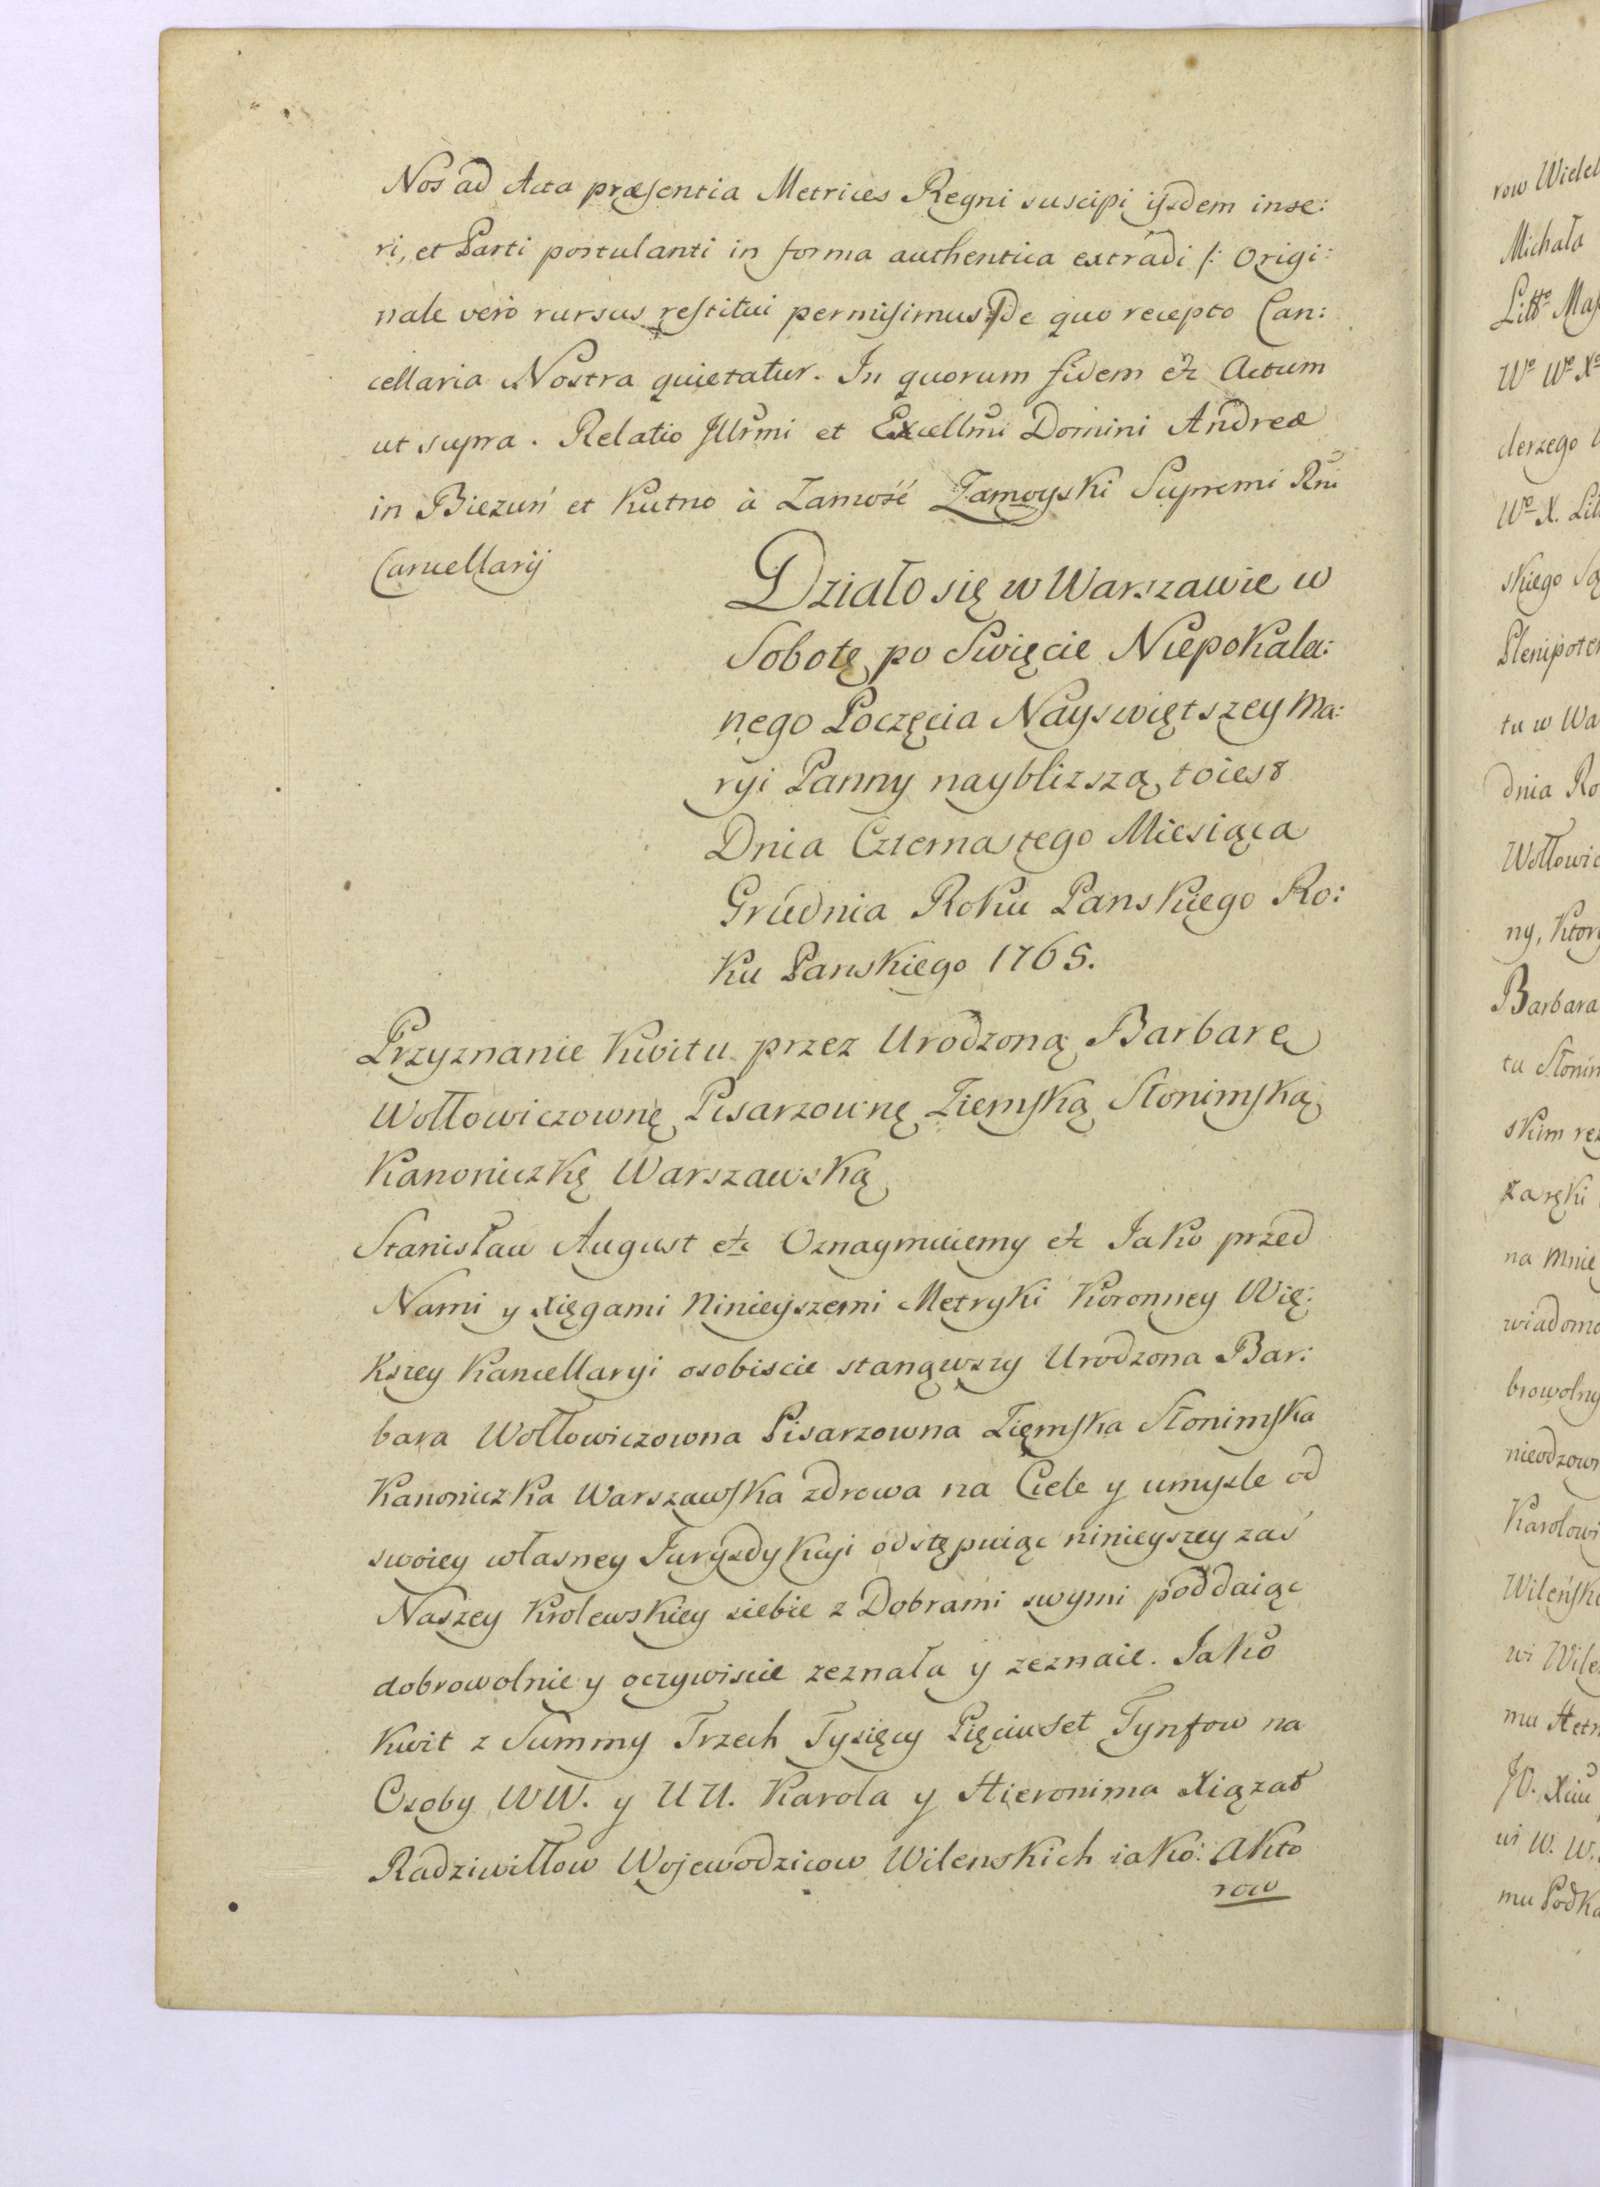 Nos ad Acta præsentia Metrices Regni suscipi ijsdem inse:
ri, et Parti postulanti in forma authentica extradi /: Origi:
nale vero rursus restitui permisimus :/ De quo recepto Can:
cellaria Nostra quietatur. In quorum fidem etc Actum
ut supra. Relatio Illrmi et Excellmi Domini Andreæ
in Biezuń et Kutno à Zamość Zamoyski Supremi Rni
Cancellarij
Działo się w Warszawie w
Sobotę po Swięcie Niepokala:
nego Poczęcia Nayswiętszey Ma:
ryi Panny naybliższą, toiest
Dnia Czternastego Miesiąca
Grudnia Roku Panskiego Ro:
ku Panskiego 1765.
Przyznanie Kwitu przez Urodzoną Barbarę
Wołłowiczownę Pisarzownę Ziemską Słonimską
Kanoniczkę Warszawską
Stanisław August etc Oznaymuiemy etc Jako przed
Nami y xięgami Ninieyszemi Metryki Koronney Wię:
kszey Kancellaryi osobiscie stanąwszy Urodzona Bar:
bara Wołłowiczowna Pisarzowna Zięmska Słonimska
Kanoniczka Warszawska zdrowa na Ciele y umysle od
swoiey własney Jurysdykcyi odstępuiąc ninieyszey zaś
Naszey Krolewskiey siebie z Dobrami swymi poddaiąc
dobrowolnie y oczywiscie zeznała y zeznaie. Jako
Kwit z Summy Trzech Tysięcy Pięciuset Tynfow na
Osoby WW. y UU. Karola y Hieronima Xiążat
Radziwiłłow Wojewodzicow Wilenskich iako: Akto
row
row Wiel
Michała
Litto
Wo Wo Xo
derzego
Wo X. Lit
skiego
Plenipote
tu w Wa
dnia Ro
Wołłowic
ny, Ktor
Barbara
tu Słonim
skim
zaręki
na mnie
wiadomo
browolny
nieodzown
Karolowi
Wileńsk
wi Wile
mu Hetm
JO. Xciu
wi W. W.
mu Podka